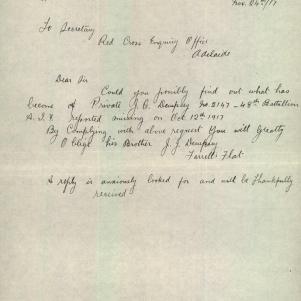 Nov. 24th/17
To Secretary
Red Cross Enquiry Office
Adelaide
Dear Sir
Could you possibly find out what has
become of Private J. C. Dempsey No. 2147 - 48th Battalion
A.I.F. reported missing on Oct 12th 1917
By Complying with above request you will Greatly
Oblige his Brother J. J. Dempsey
Farrell's Flat
A reply is anxiously looked for and will be thankfully
received